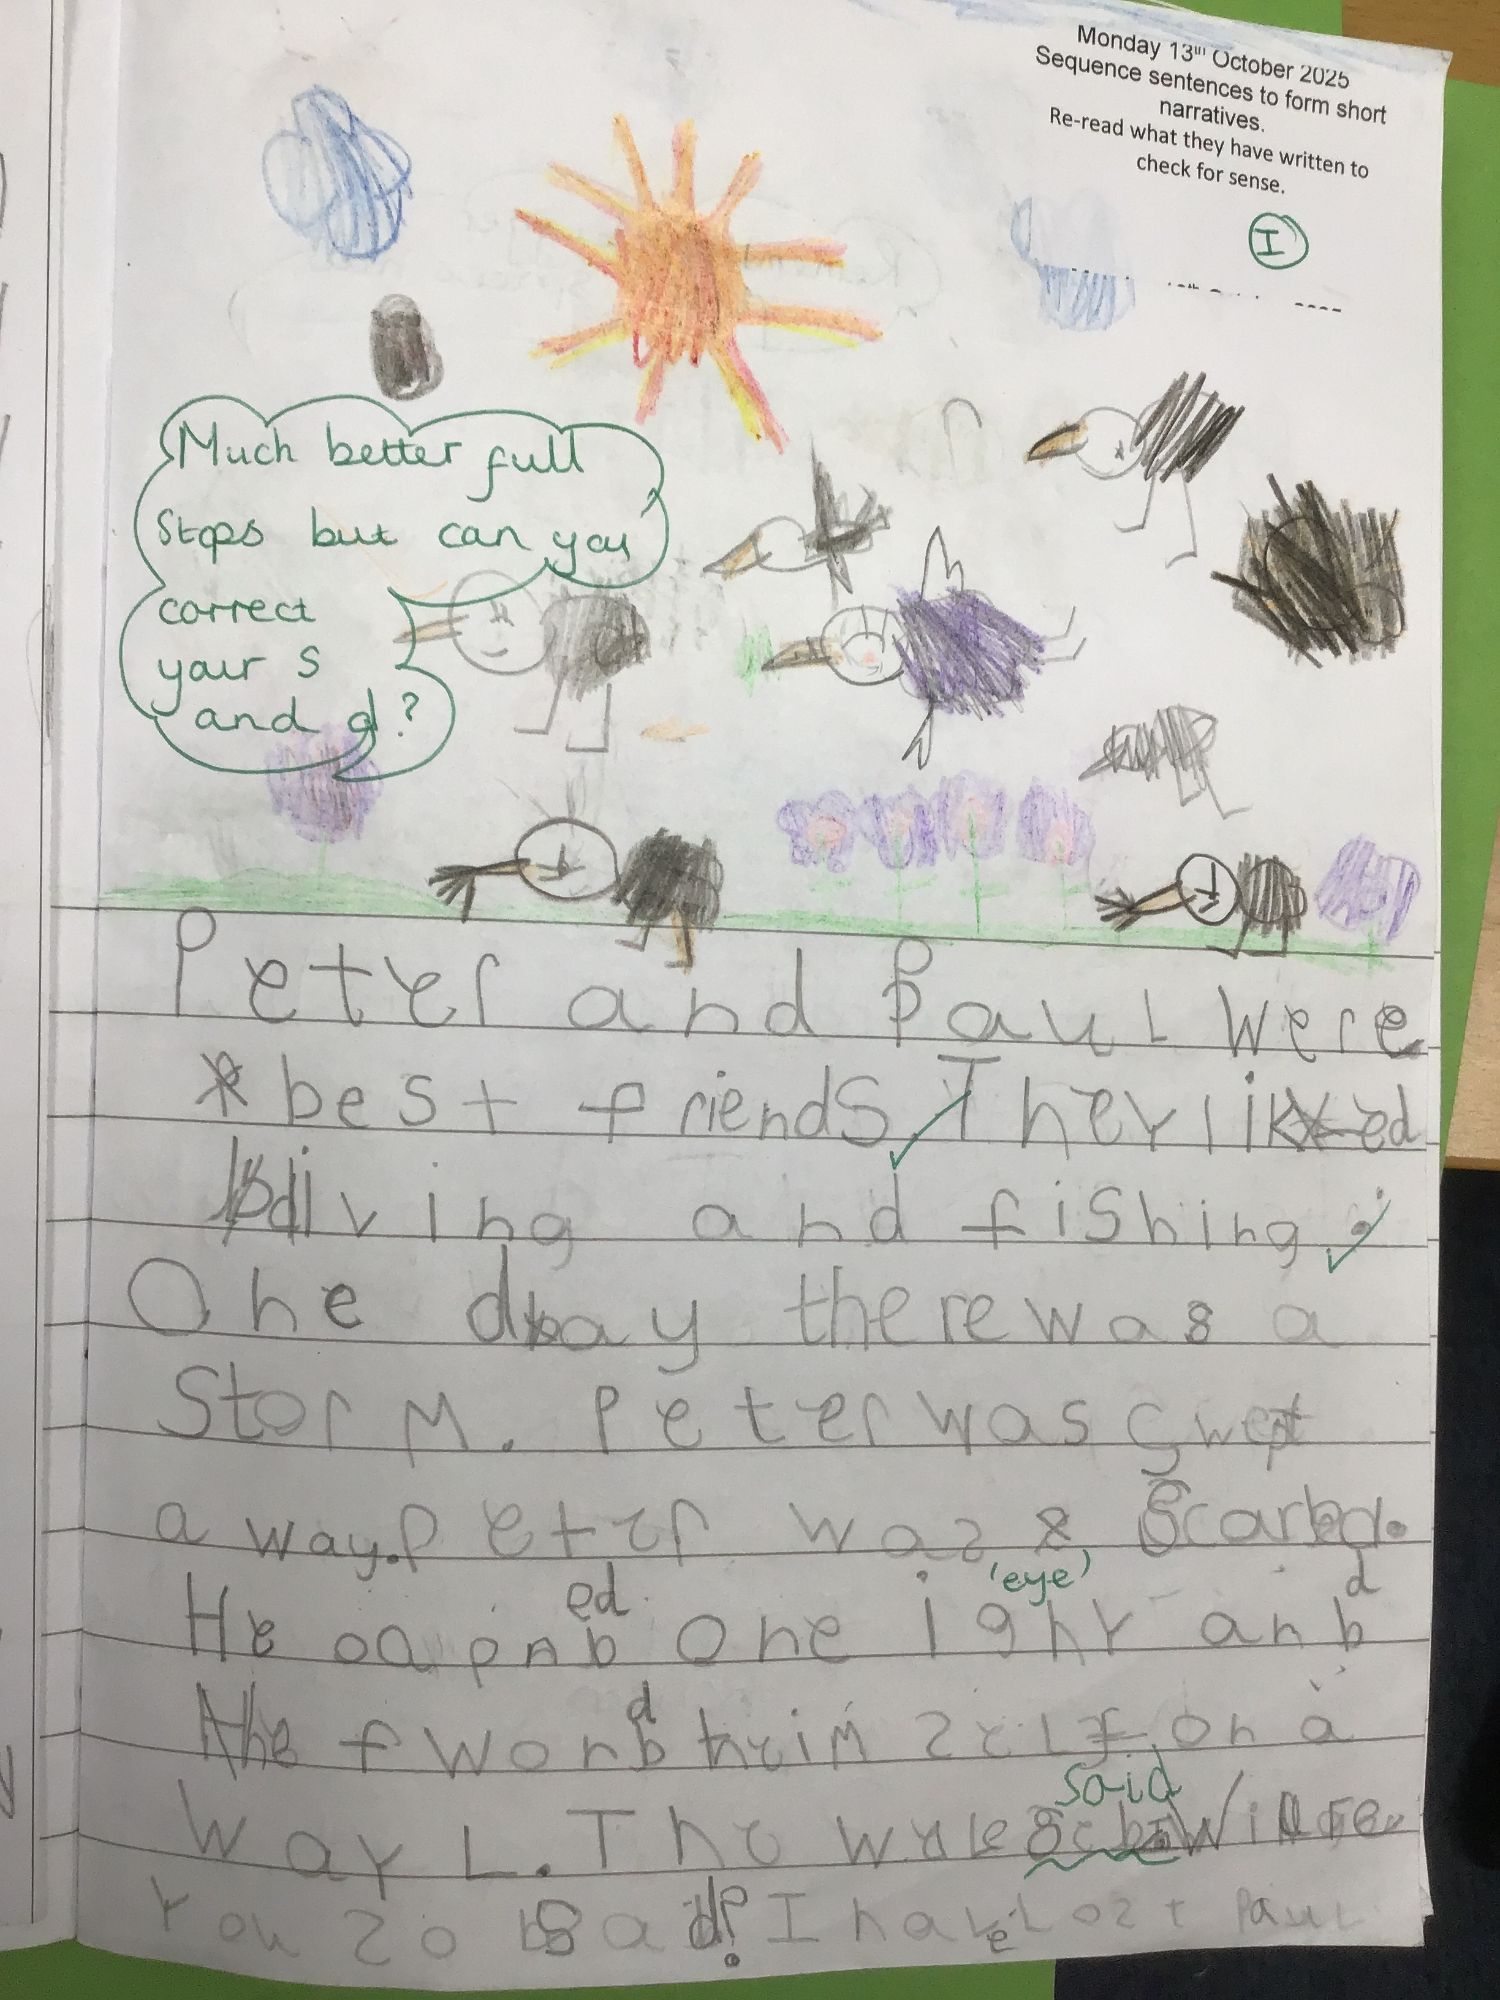 Monday 13th October 2025
Sequence sentences to form short
narratives.
Re-read what they have written to
check for sense.
I
Much better full
stops but can you
correct
your s
and d?
Peter and Paul were
best friends. They liked
diving and fishing.
One day there was a
Storm. Peter was swept
away. Peter was scared.
ed 'eye' d
He oapnb one ighy anb
d
the fworb himself on a
said
wayl. The wale
you so sad? I have lost Paul